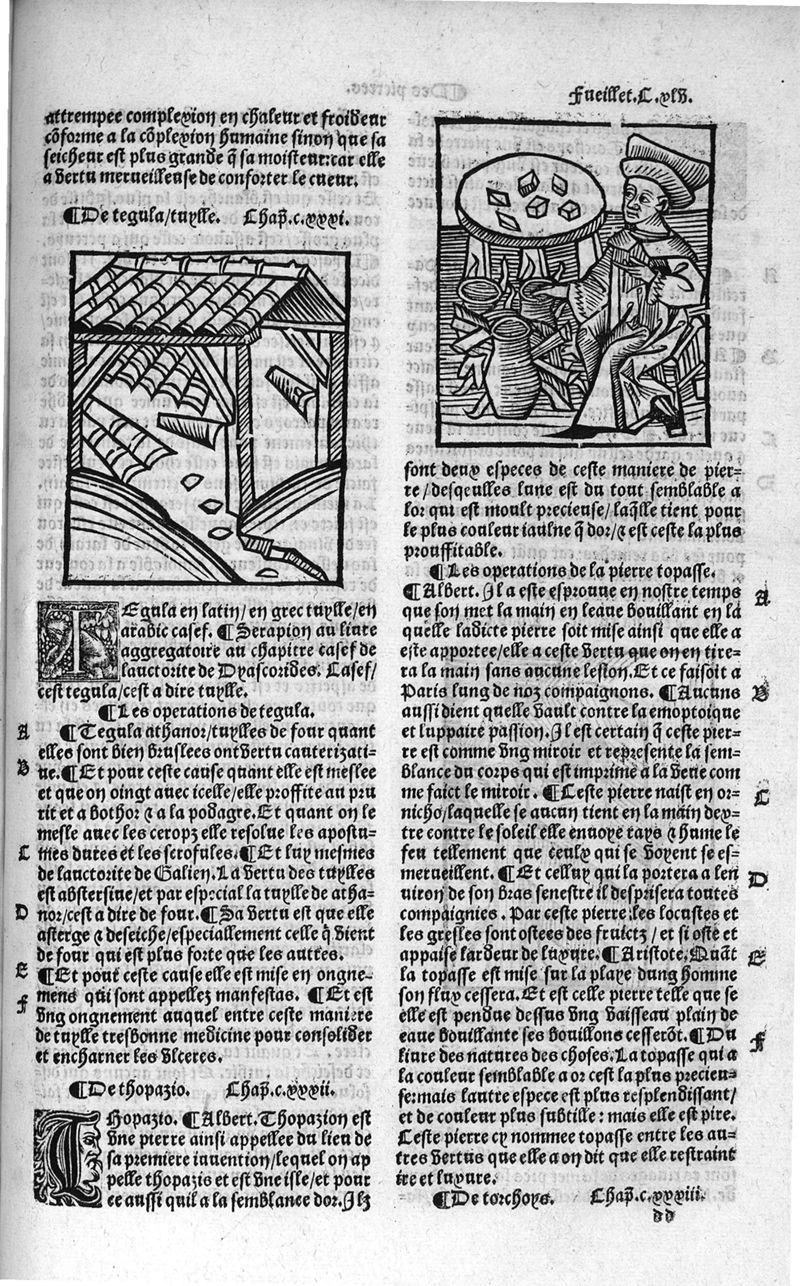 Fueillet.C.xlv.
attrempee complexion en chaleur et froideur
cõforme a la cõplexion humaine sinon que sa
seicheur est plus grande q̃ sa moisteur:car elle
a vertu merueilleuse de conforter le cueur.
¶De tegula/tuylle. Chap̃.c.xxxi.
TEgula en latin/en grec tuylle/en
arabic casef. ¶Serapion au liure
aggregatoire au chapitre casef de
lauctorite de Dyascorides. Casef/
cest tegula/cest a dire tuylle.
¶Les operations de tegula.
A ¶Tegula athanor/tuylles de four quant
elles sont bien bruslees ont vertu cauterizati-
B ue.¶Et pour ceste cause quant elle est meslee
et que on oingt auec icelle/elle proffite au pru
rit et a bothor & a la podagre. Et quant on le
mesle auec les ceropz elle resolue les apostu-
C mes dures et les scrofules.¶Et luy mesmes
de lauctorite de Galien. La vertu des tuylles
est abstersiue/et par especial la tuylle de atha-
D nor/cest a dire de four.¶Sa vertu est que elle
asterge & deseiche/especiallement celle q̃ vient
de four qui est plus forte que les autres.
E ¶Et pour ceste cause elle est mise en ongne-
F mens qui sont appellez manfestas. ¶Et est
vng ongnement auquel entre ceste maniere
de tuylle tresbonne medicine pour consolider
et encharner les vlceres.
¶De thopazio. Chap̃.c.xxxii.
THopazio. ¶Albert. Thopazion est
vne pierre ainsi appellee du lieu de
sa premiere inuention/lequel on ap
pelle thopazis et est vne isle/et pour
ce aussi quil a la semblance dor. Ilz
sont deux especes de ceste maniere de pier-
re/desquelles lune est du tout semblable a
lor qui est moult precieuse/laq̃lle tient pour
le plus couleur iaulne q̃ dor/& est ceste la plus
prouffitable.
¶Les operations de la pierre topasse.
¶Albert. Il a este esprouue en nostre temps A
que son met la main en leaue bouillant en la
quelle ladicte pierre soit mise ainsi que elle a
este apportee/elle a ceste vertu que on en tire-
ra la main sans aucune lesion. Et ce faisoit a
Paris lung de noz compaignons. ¶Aucuns B
aussi dient quelle vault contre la emoptoique
et luppaire passion. Il est certain q̃ ceste pier-
re est comme vng miroir et represente la sem-
blance du corps qui est imprime a la veue com
me faict le miroir. ¶Ceste pierre naist en or- C
nicho/laquelle se aucun tient en la main dex-
tre contre le soleil elle enuoye rays & hume le
feu tellement que ceulx qui se voyent se es-
merueillent. ¶Et celluy qui la portera a len D
uiron de son bras senestre il desprisera toutes
compaignies. Par ceste pierre les locustes et
les gresles sont ostees des fruictz/et si oste et
appaise lardeur de luxure. ¶Aristote. Quãt E
la topasse est mise sur la playe dung homme
son flux cessera. Et est celle pierre telle que se
elle est pendue dessus vng vaisseau plain de
eaue bouillante ses bouillons cesserõt. ¶Du F
liure des natures des choses. La topasse qui a
la couleur semblable a or cest la plus precieu-
se:mais lautre espece est plus resplendissant/
et de couleur plus subtille: mais elle est pire.
Ceste pierre cy nommee topasse entre les au-
tres vertus que elle a on dit que elle restraint
ire et luxure.
¶De torchoys. Chap̃.c.xxxiii.
dd